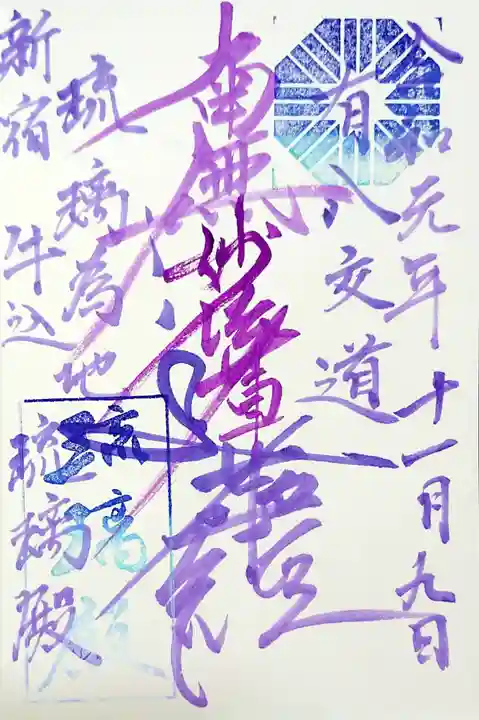 令和元年十一月九日
有八交道
南無妙法蓮華経
琉璃為地
新宿 牛込 琉璃殿
琉璃殿